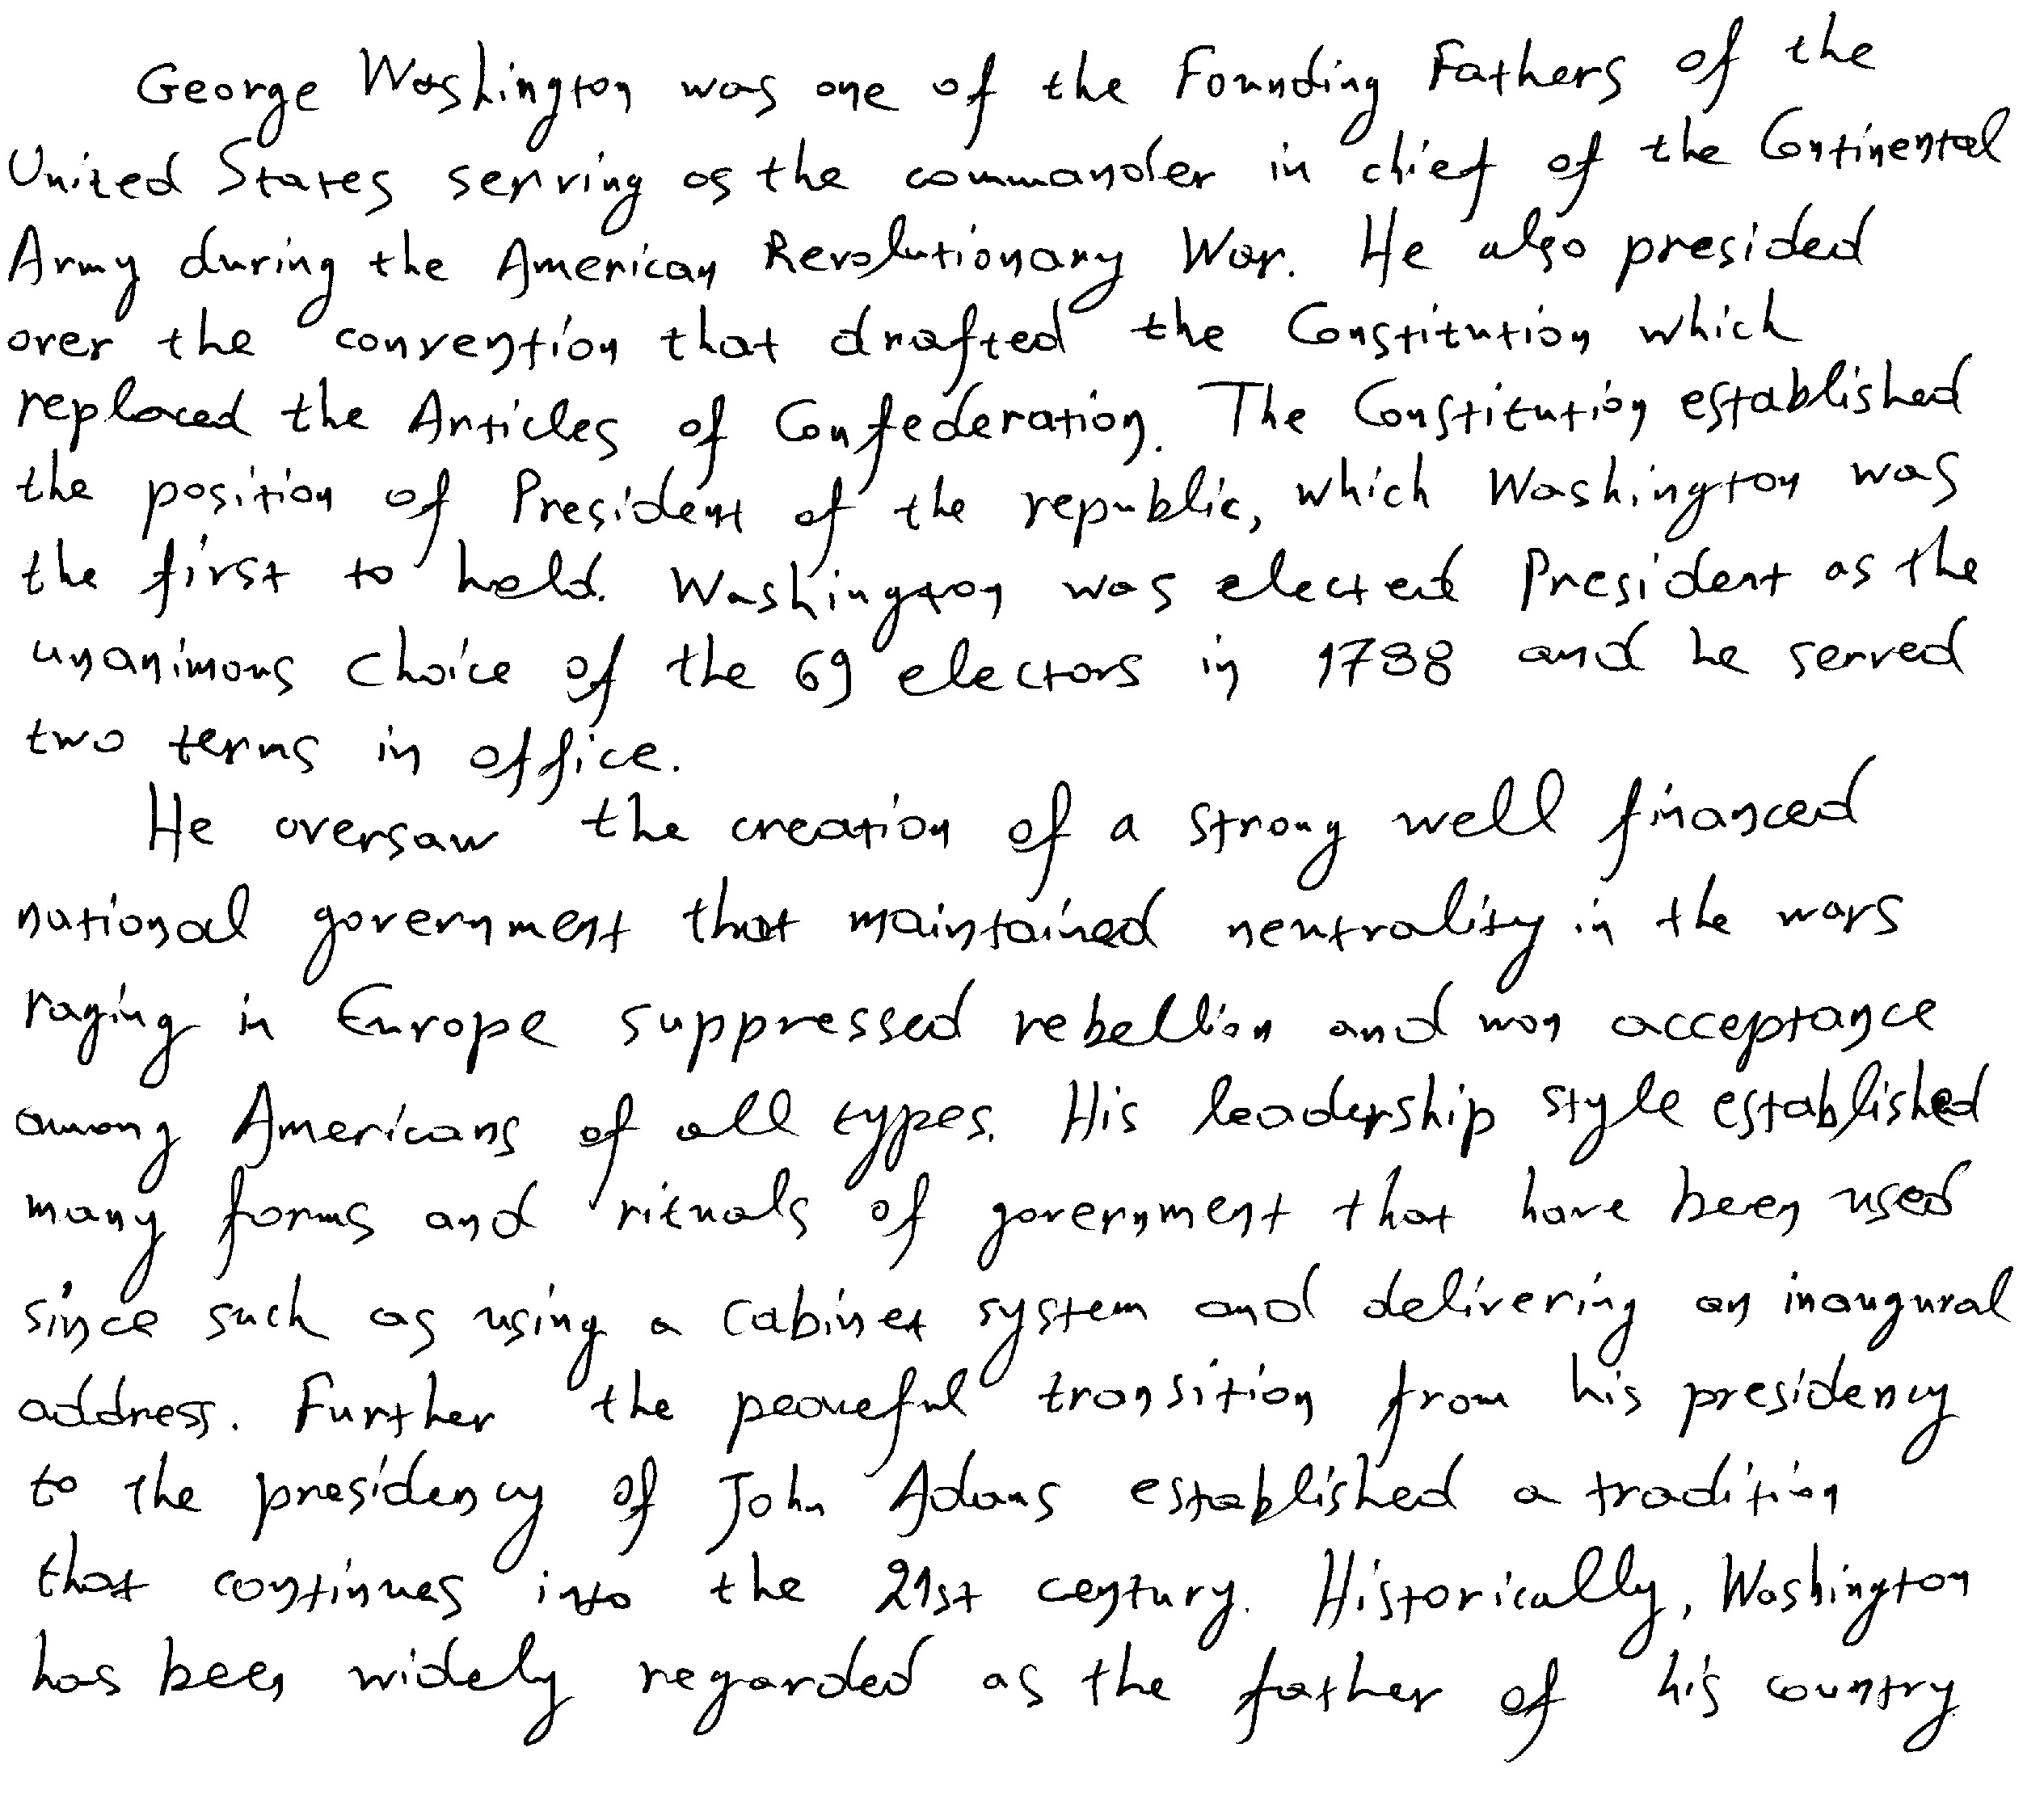 George Washington was one of the Founding Fathers of the
United States serving as the commander in chief of the Continental
Army during the American Revolutionary War. He also presided
over the convention that drafted the Constitution which
replaced the Articles of Confederation. The Constitution established
the position of President of the republic, which Washington was
the first to hold. Washington was elected President as the
unanimous choice of the 69 electors in 1788 and he served
two terms in office.
He oversaw the creation of a strong well financed
national government that maintained neutrality in the wars
raging in Europe suppressed rebellion and won acceptance
among Americans of all types. His leadership style established
many forms and rituals of government that have been used
since such as using a cabinet system and delivering an inaugural
address. Further the peaceful transition from his presidency
to the presidency of John Adams established a tradition
that continues into the 21st century. Historically, Washington
has been widely regarded as the father of his country